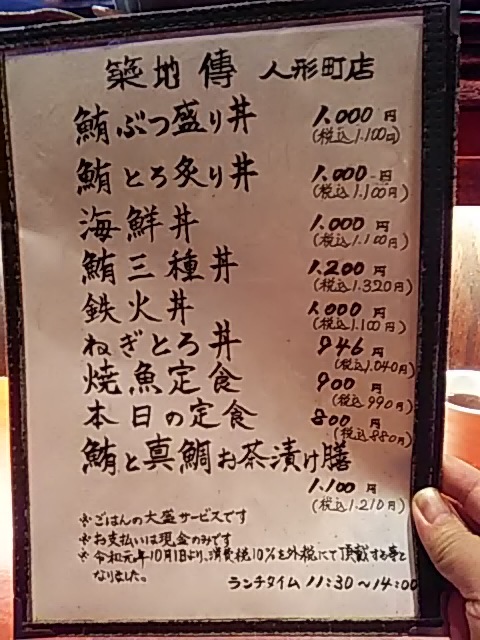 築地傳 人形町店
鮪ぶつ盛り丼 1.000円
(税込1.100円)
鮪とろ炙り丼 1.000円
(税込1.100円)
海鮮丼 1.000円
(税込1.100円)
鮪三種丼 1.200円
(税込1.320円)
鉄火丼 1.000円
(税込1.100円)
ねぎとろ丼 946円
(税込1.040円)
焼魚定食 900円
(税込990円)
本日の定食 800円
(税込880円)
鮪と真鯛お茶漬け膳
1.100円
(税込1.210円)
※ごはんの大盛サービスです
※お支払いは現金のみです
※令和元年10月1日より、消費税10%を外税にて頂戴する事と
なりました。
ランチタイム 11:30〜14:00